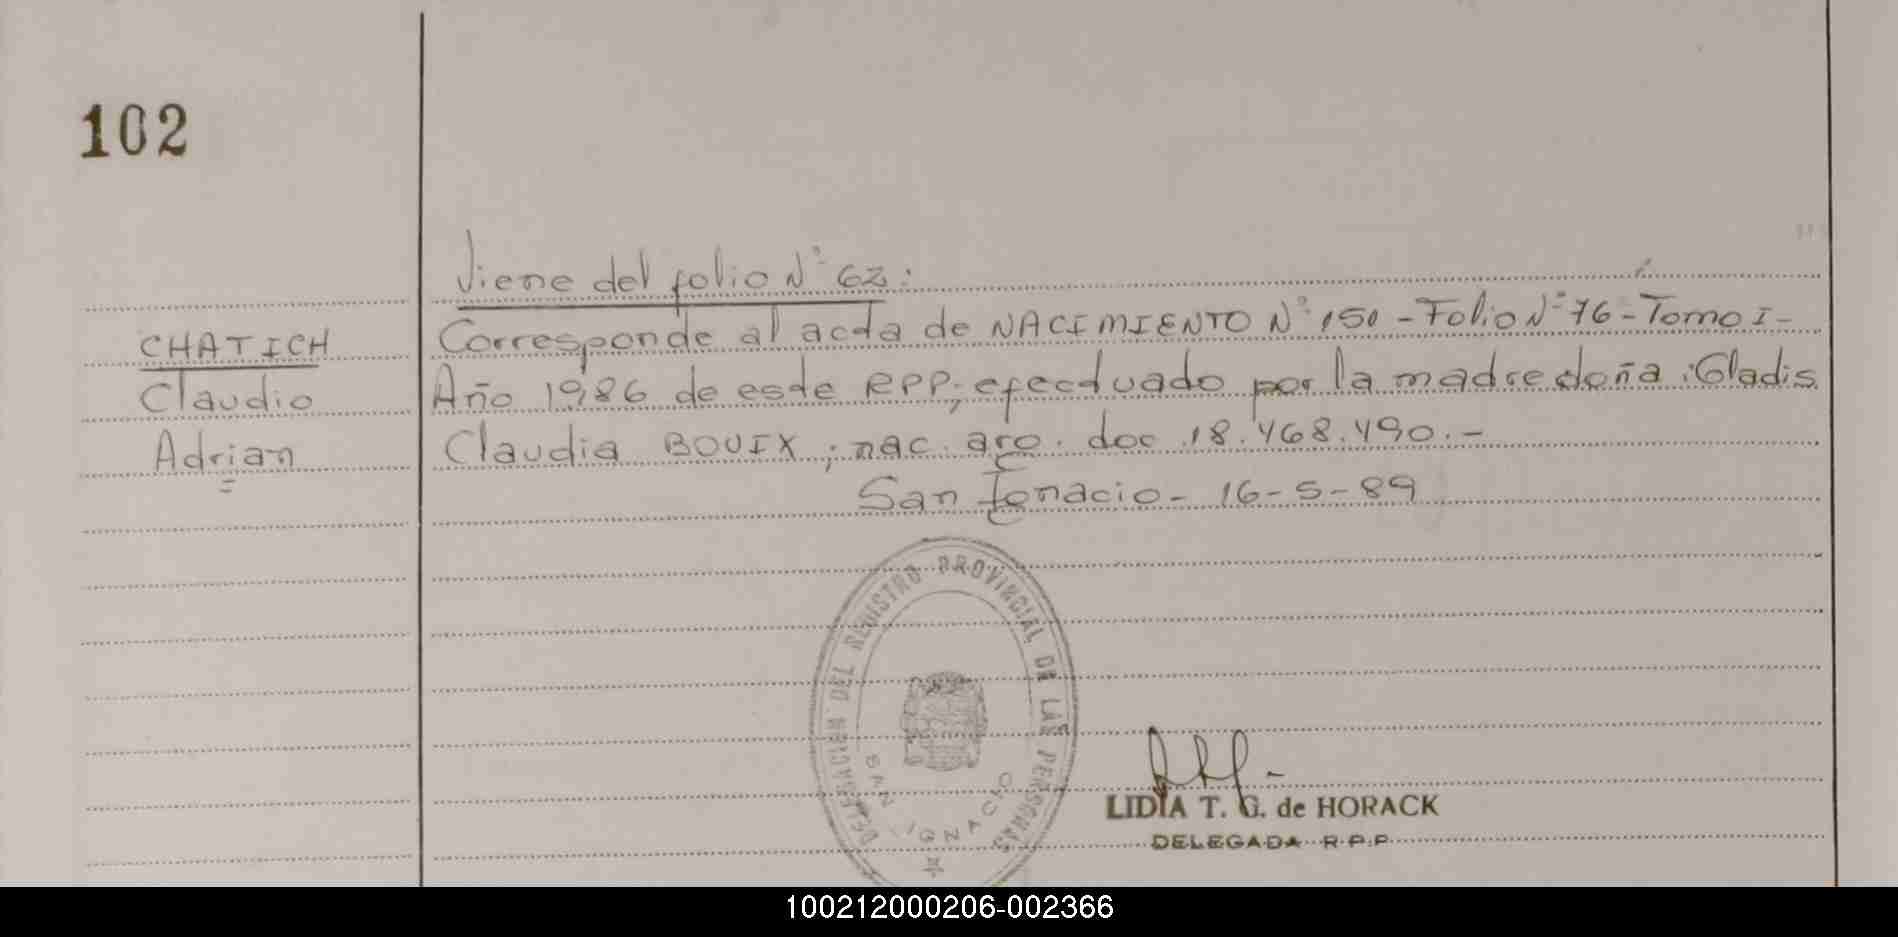 102
Viene del folio Nº 62:
CHATICH
Claudio
Adrian
Corresponde al acta de NACIMIENTO Nº 150 - Folio Nº 76 - Tomo I -
Año 1986 de este RPP; efectuado por la madre doña: Gladis
Claudia BOUIX; nac. arg. doc 18.468.490.-
San Ignacio - 16-5-89
DELEGACION DEL REGISTRO PROVINCIAL DE LAS PERSONAS
SAN IGNACIO
LIDIA T. G. de HORACK
DELEGADA R.P.P.
100212000206-002366